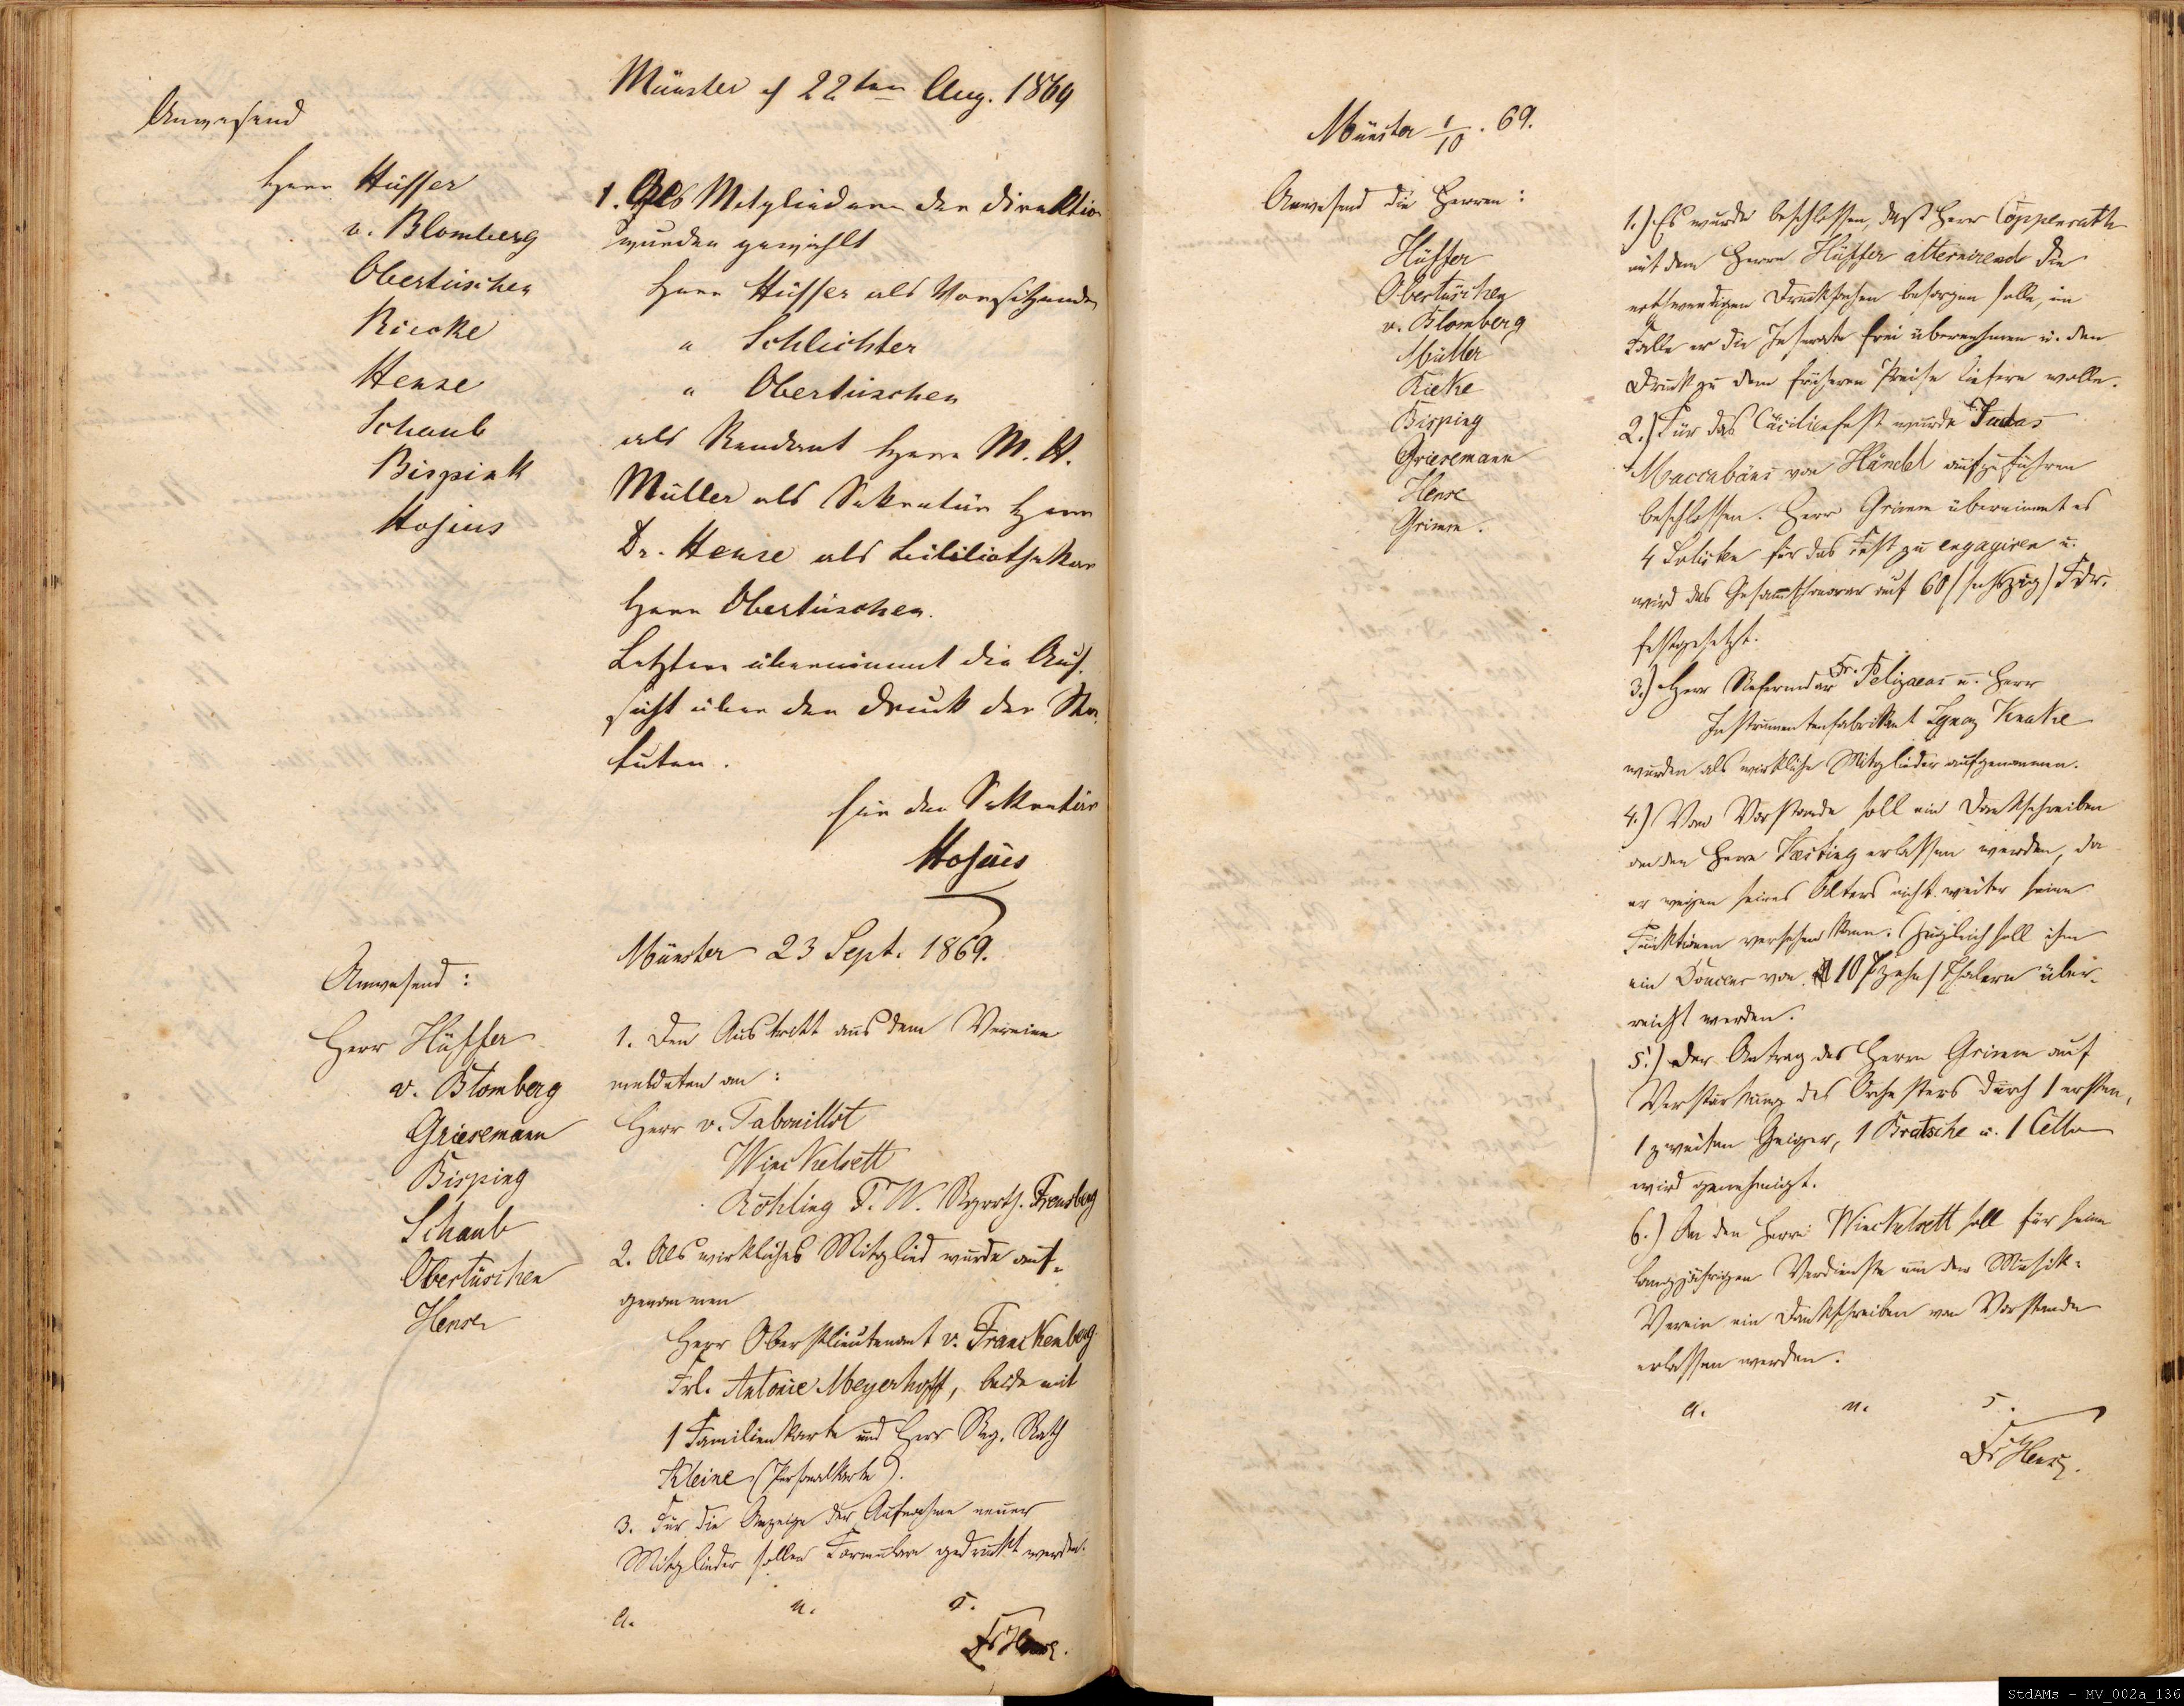 Münster d 22ten Aug. 1869
Anwesend
Herr Hüffer
v. Blomberg
Obertüschen
Riecke
Hense
Schaub
Bispink
Hosius
1. Als Mitglieder der Direktion
wurden gewählt
Herr Hüffer als Vorsitzender
" Schlichter
" Obertüschen
als Rendant Herr M. H.
Müller als Sekretär Herr
Dr. Hense als Bibliothekar
Herr Obertüschen.
Letzterer übernimmt die Auf-
sicht über den Druck der Sta-
tuten.
Für den Sekretär
Hosius
Münster 23 Sept. 1869.
Anwesend:
Herr Hüffer
v. Blomberg
Griesemann
Bisping
Schaub
Obertüschen
Hense
1. Den Austritt aus dem Vereine
meldeten an:
Herr v. Tabouillot
Winckelsett
Röhling F. W.
2. Als wirkliches Mitglied wurde auf-
genommen
Herr Oberstlieutenant v. Franckenberg
Frl. Antonie Meyerhoff, beide mit
1 Familienkarte und Herr Reg. Rath
Kleine (Personalkarte).
3. Für die Anzeige der Aufnahme neuer
Mitglieder sollen Formulare gedruckt werden.
a. u. s.
Dr Hense.
Münster 1/10. 69.
Anwesend die Herren:
Hüffer
Obertüschen
v. Blomberg
Müller
Rieke
Bisping
Griesemann
Hense
Grimm.
1.) Es wurde beschlossen, daß Herr Coppenrath
mit dem Herrn Hüffer alternirend die
nothwendigen Drucksachen besorgen solle, im
Falle er die Inserate frei übernehmen u. den
Druck zu dem früheren Preise liefern wolle.
2.) Für das Cäcilienfest wurde Judas
Maccabäus von Händel aufzuführen
beschlossen. Herr Grimm übernimmt es
4 Solisten für das Fest zu engagiren u.
wird das Gesammthonorar auf 60 (sechszig) Fdr.
festgesetzt.
3.) Herr Referendar Fr. u. Herr
Instrumentenfabrikant Ignaz Knake
wurden als wirkliche Mitglieder aufgenommen.
4.) Vom Vorstande soll ein Dankschreiben
an den Herrn erlassen werden, da
er wegen seines Alters nicht weiter seine
Funktionen versehen kann. Zugleich soll ihm
ein Douceur von 10 (zehn) Thalern über-
reicht werden.
5.) Der Antrag des Herrn Grimm auf
Verstärkung des Orchesters durch 1 ersten,
1 zweiten Geiger, 1 Bratsche u. 1 Cello
wird genehmigt.
6.) An den Herrn Winckelsett soll für seine
langjährigen Verdienste um den Musik-
Verein ein Dankschreiben vom Vorstande
erlassen werden.
a. u. s.
Dr Hense.
StdAMs - MV_002a_136